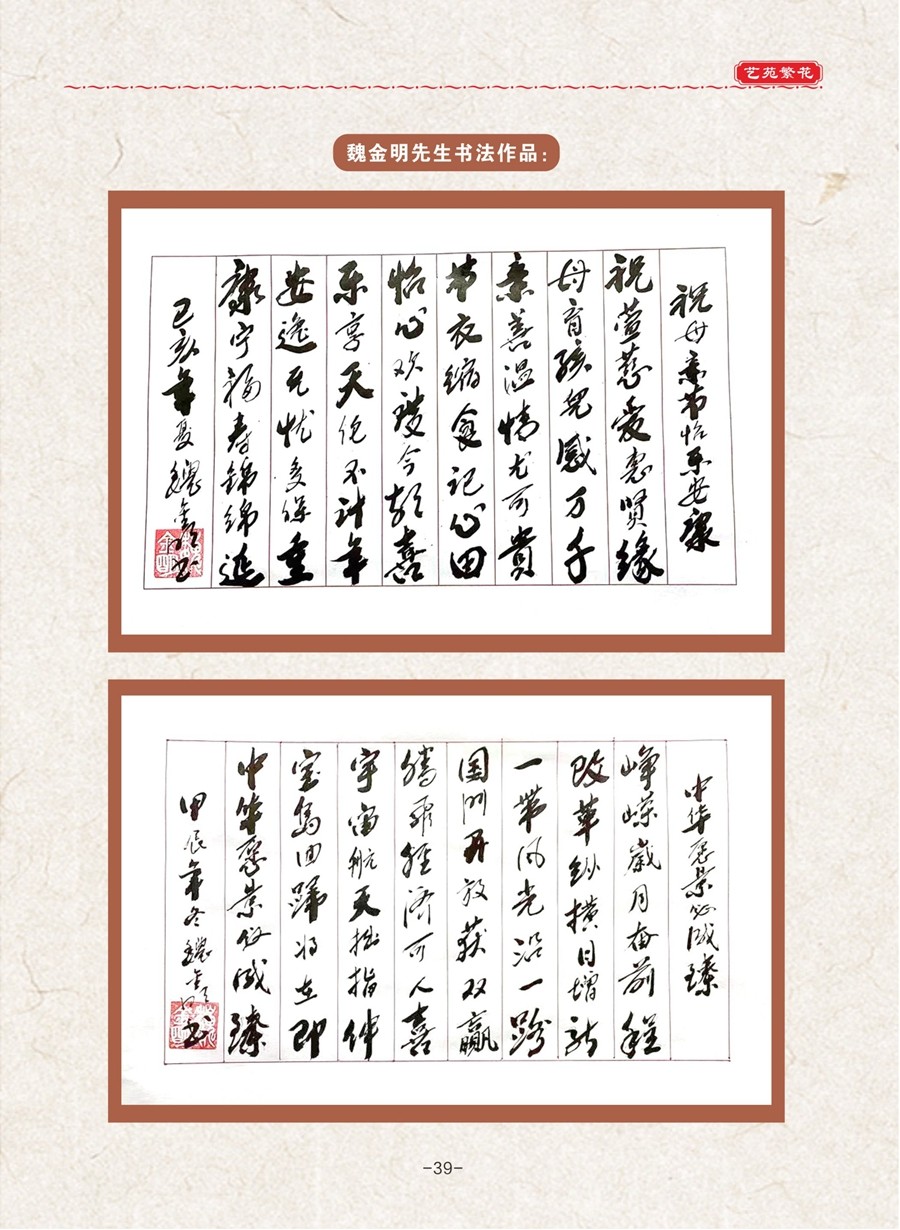 艺苑繁花
魏金明先生书法作品：
祝母亲节怡乐安康
祝萱慈爱惠贤缘
母育孩儿感万千
亲善温情尤可贵
节衣缩食记心田
怡心欢度今朝喜
乐享天伦不计年
安逸无忧多保重
康宁福寿锦绵延
己亥年夏魏金明书
中华愿景必成臻
峥嵘岁月奋前程
改革纵横日增新
一带风光沿一路
国门开放获双赢
腾飞经济可人喜
宇宙航天拇指伸
宝岛回归将在即
中华愿景必成臻
甲辰年冬魏金明书
-39-